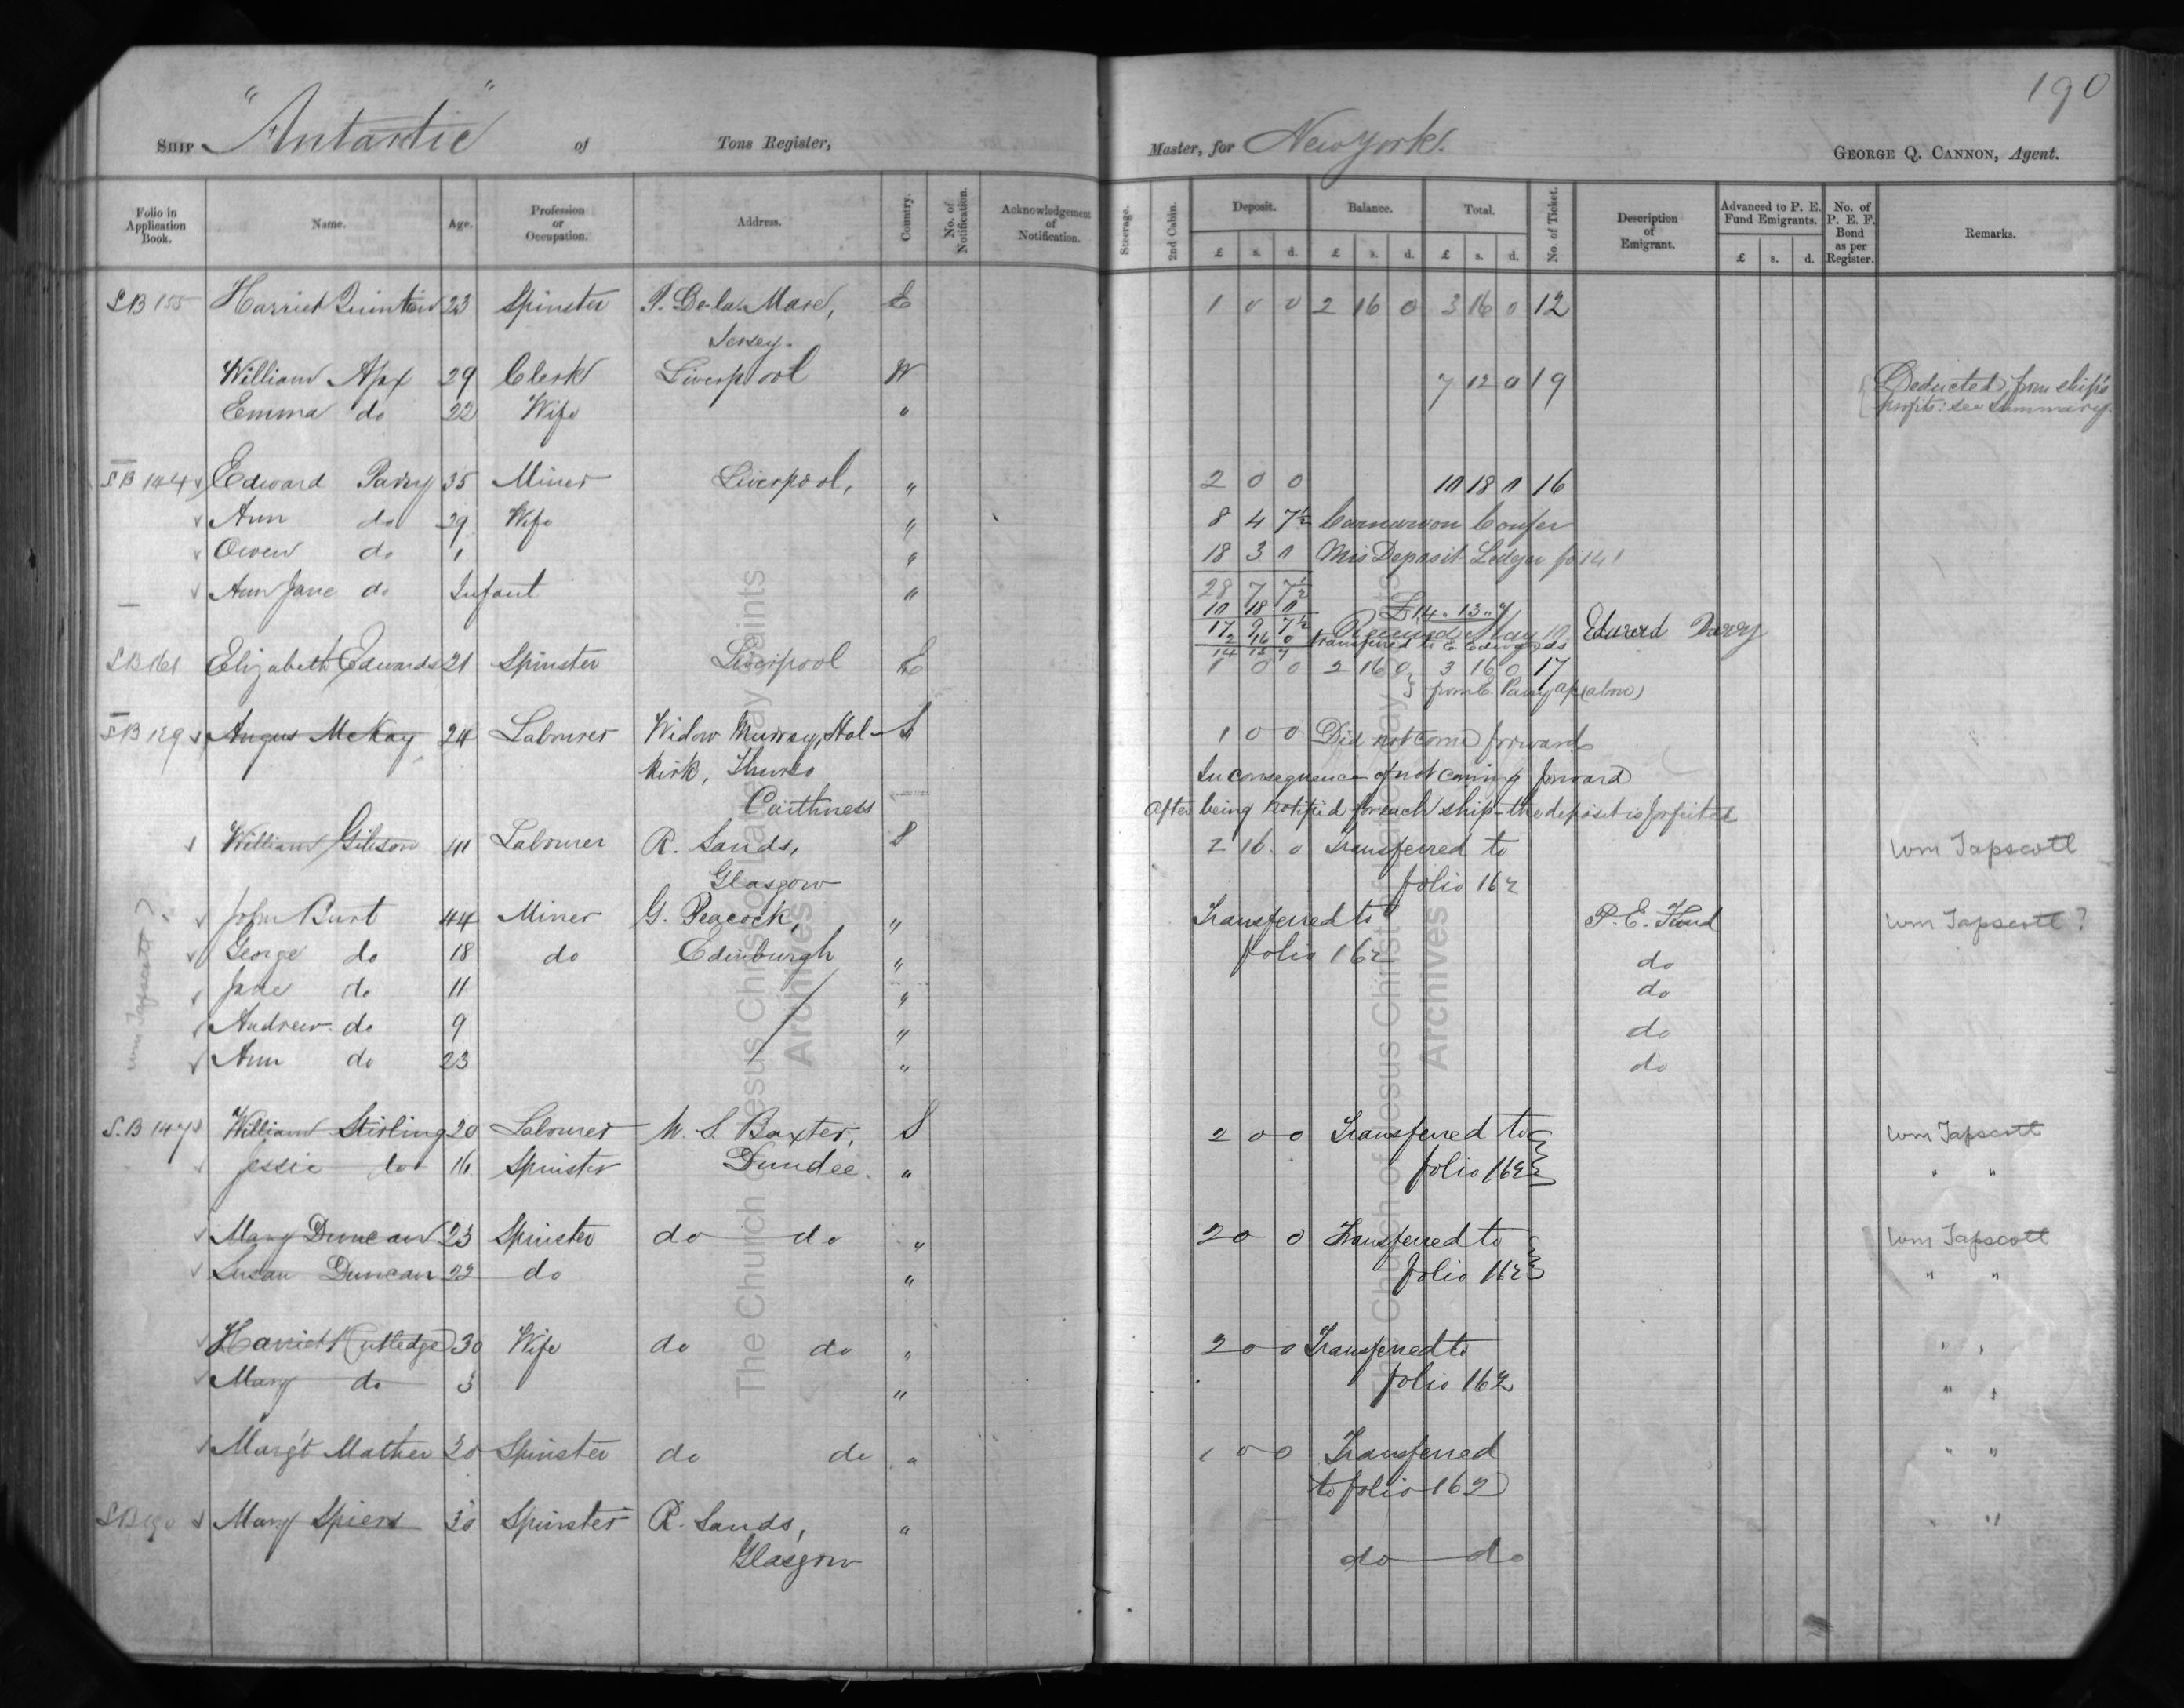 190
SHIP "Antartic" of Tons Register, Master, for New York. GEORGE Q. CANNON, Agent.
Folio in Application Book. Name. Age. Profession or Occupation. Address. Country. No. of Notification. Acknowledgement of Notification. Steerage. 2nd Cabin. Deposit. £ s. d. Balance. £ s. d. Total. £ s. d. No. of Ticket. Description of Emigrant. Advanced to P. E. Fund Emigrants. £ s. d. No. of P. E. F. Bond as per Register. Remarks.
SB 155 Harriet Quinton 23 Spinster P. De-la-Mare, E 1 0 0 2 16 0 3 16 0 12
Jersey.
William Apx 29 Clerk Liverpool W 7 12 0 19 Deducted from ship's
Emma do 22 Wife " profits: see summary.
SB 144 Edward Parry 35 Miner Liverpool, " 2 0 0 10 18 0 16
Ann do 29 Wife " 8 4 7½ Carnarvon Confer
Owen do 1 " 18 3 0 Mis Deposit Ledger fo 141
Ann Jane do Infant " 28 7 7½
10 18 0 £14.13.7
17 9 7½ Received May 10. Edward Parry
2 16 0 transferred to E. Edwards
14 13 7
SB 161 Elizabeth Edwards 21 Spinster Liverpool E 1 0 0 2 16 0 3 16 0 17
from E. Parry a/c (above)
SB 129 Angus McKay 24 Labourer Widow Murray, Hal- S 1 0 0 Did not come forward
kirk, Thurso In consequence of not coming forward
Caithness After being notified for each ship the deposit is forfeited
William Gibson 41 Labourer R. Sands, S 2 16 0 Transferred to Wm Tapscott
Glasgow folio 162
John Burt 44 Miner G. Peacock, " Transferred to P. E. Fund Wm Tapscott?
George do 18 do Edinburgh " folio 162 do
Jane do 11 " do
Andrew do 9 " do
Ann do 23 " do
Wm Tapscott?
S.B 147 William Stirling 20 Labourer W. S. Baxter, S 2 0 0 Transferred to Wm Tapscott
Jessie do 16 Spinster Dundee. " folio 162 " "
Mary Duncan 23 Spinster do do " 2 0 0 Transferred to Wm Tapscott
Susan Duncan 22 do " folio 162 " "
Harriet Rutledge 30 Wife do do " 2 0 0 Transferred to " "
Mary do 3 " folio 162 " "
Marg't Mather 20 Spinster do do " 1 0 0 Transferred " "
to folio 162
SB Mary Spiers 30 Spinster R. Sands, " " "
Glasgow do do
The Church of Jesus Christ of Latter-day Saints
Archives
The Church of Jesus Christ of Latter-day Saints
Archives